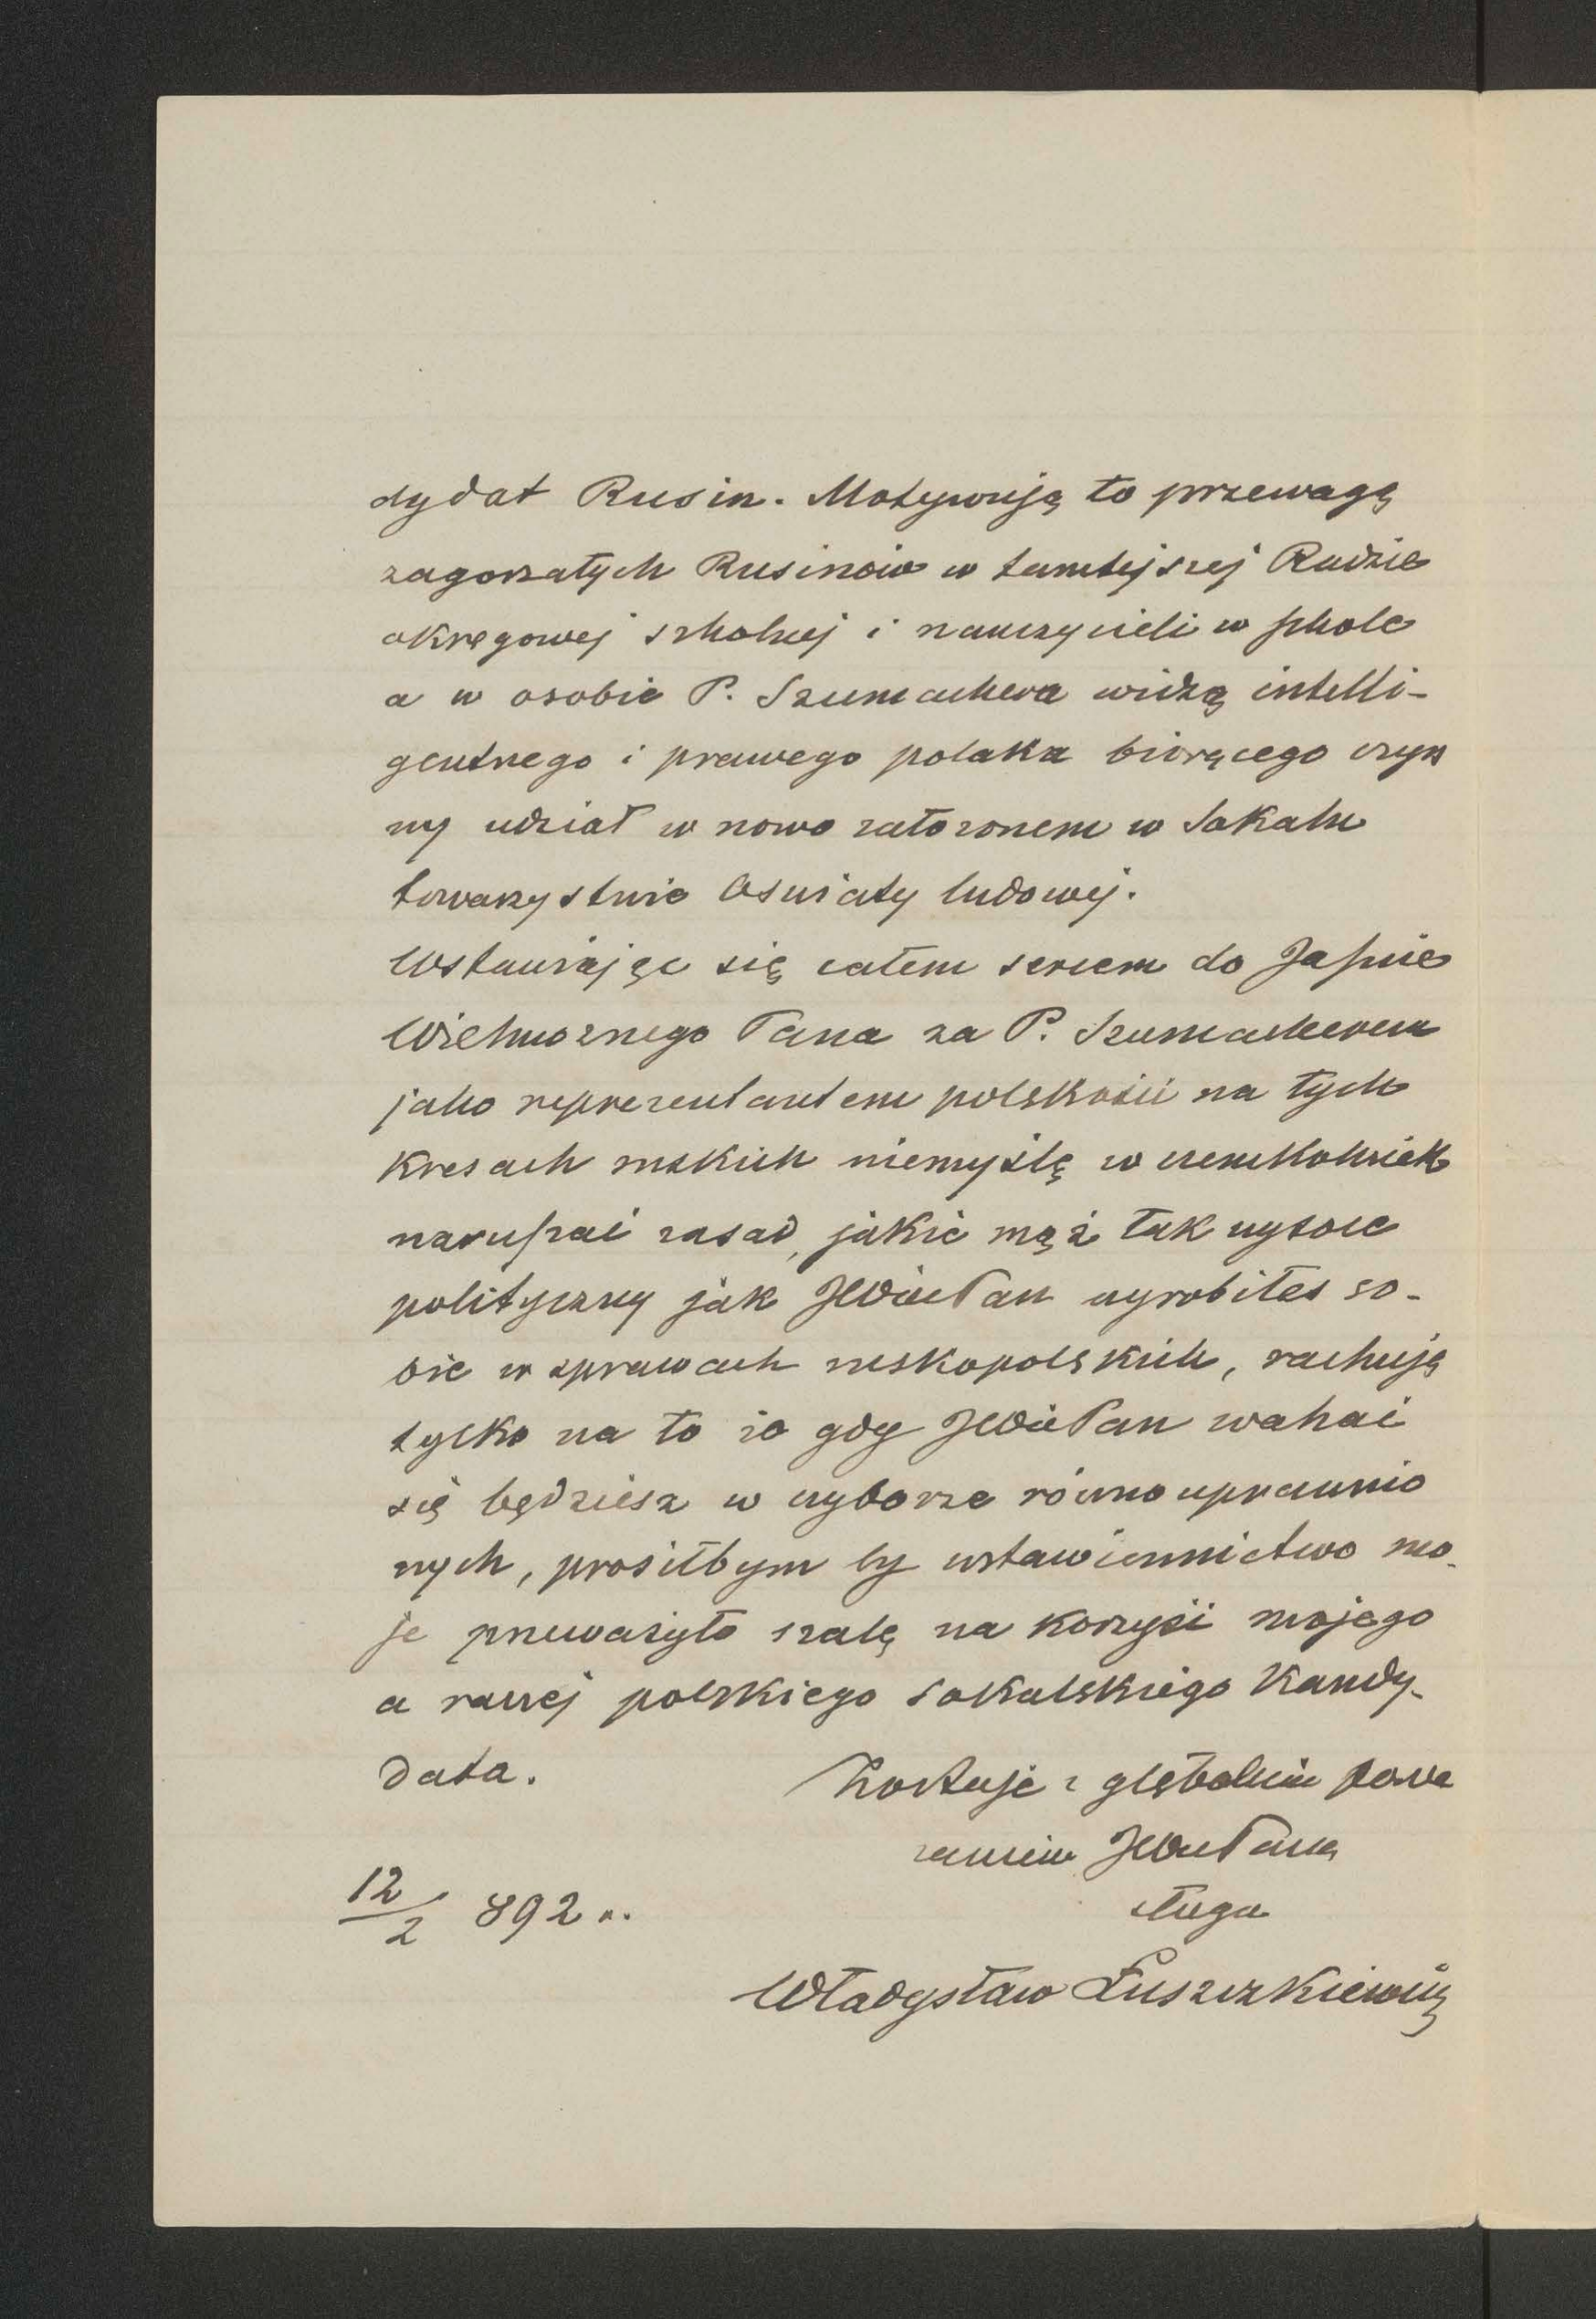 dydat Rusin. Motywują to przewagą
zagorzałych Rusinów w tamtejszej Radzie
okręgowej szkolnej i nauczycieli w szkole
a w osobie P. Szumachera widzą intelli-
gentnego i prawego polaka biorącego czyn
ny udział w nowo założonem w Sokalu
towarzystwie Oświaty ludowej.
Wstawiając się całem sercem do Jaśnie
Wielmożnego Pana za P. Szumacherem
jako reprezentantem polskości na tych
Kresach ruskich niemyślę w czemkolwiek
naruszać zasad, jakie mąż tak wysoce
polityczny jak JWiePan wyrobiłeś so-
bie w sprawach ruskopolskich, rachuję
tylko na to że gdy JWiePan wahać
się będziesz w wyborze równouprawnio
nych, prosiłbym by wstawiennictwo mo-
je przeważyło szalę na korzyść mojego
a raczej polskiego sokalskiego Kandy-
data.
Zostaję z głębokim powa
żaniem JWiePana
sługa
12/2 892 r.
Władysław Łuszczkiewicz